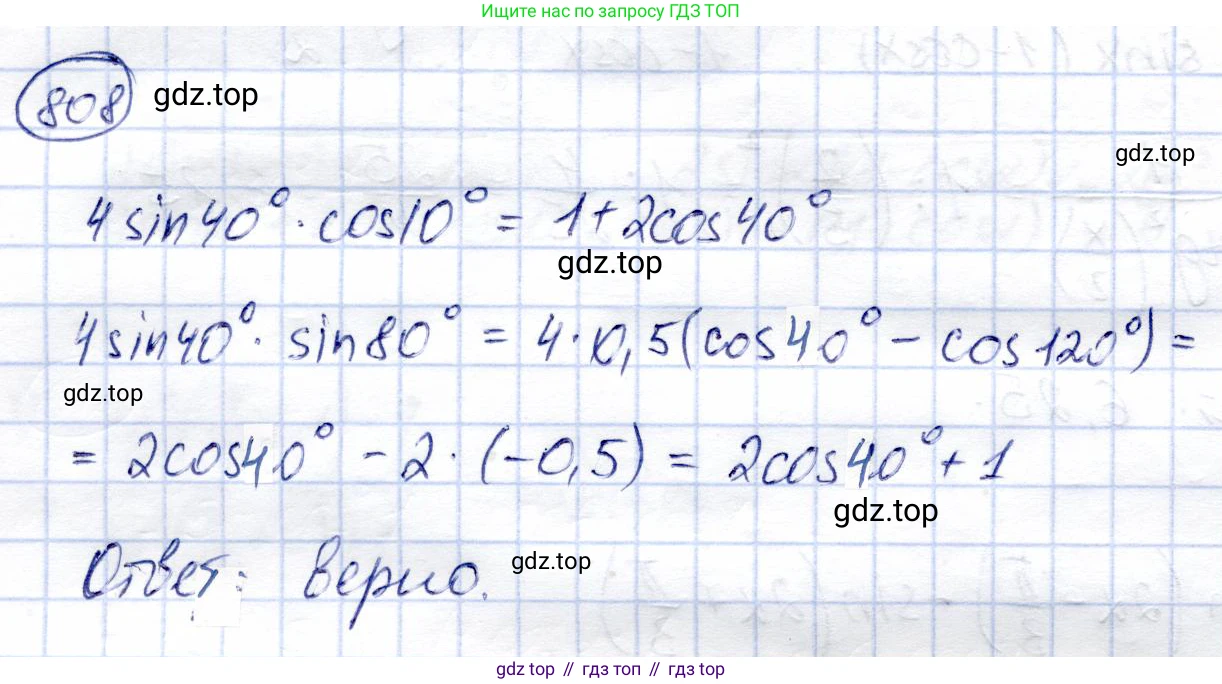 Ищите нас по запросу ГДЗ ТОП
808 gdz.top
gdz.top
4 sin40° · cos10° = 1 + 2cos40°
gdz.top
4 sin40° · sin80° = 4 · 0,5(cos40° - cos120°) =
gdz.top
= 2cos40° - 2 · (-0,5) = 2cos40° + 1
gdz.top
Ответ: верно.
gdz.top
gdz top // гдз топ // гдз top